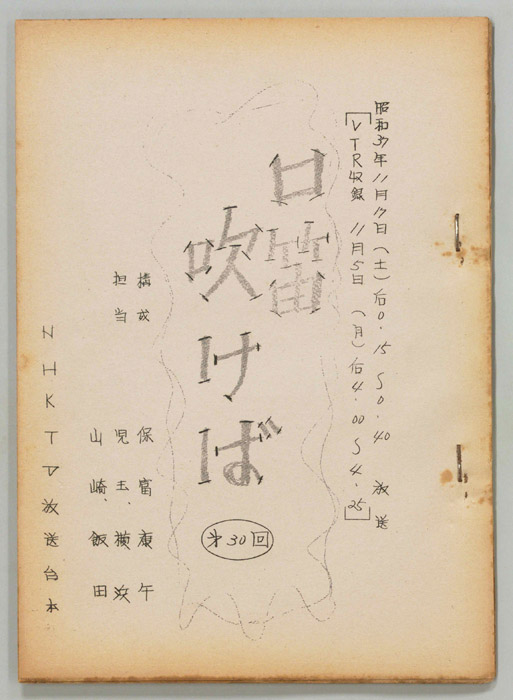 昭和37年11月17日(土)后0.15〜0.40 放送
[VTR収録 11月5日(月)后4.00〜4.25]
口笛
吹けば
第30回
構成 保富康午
担当 児玉、横浜
山崎、飯田
NHKTV放送台本